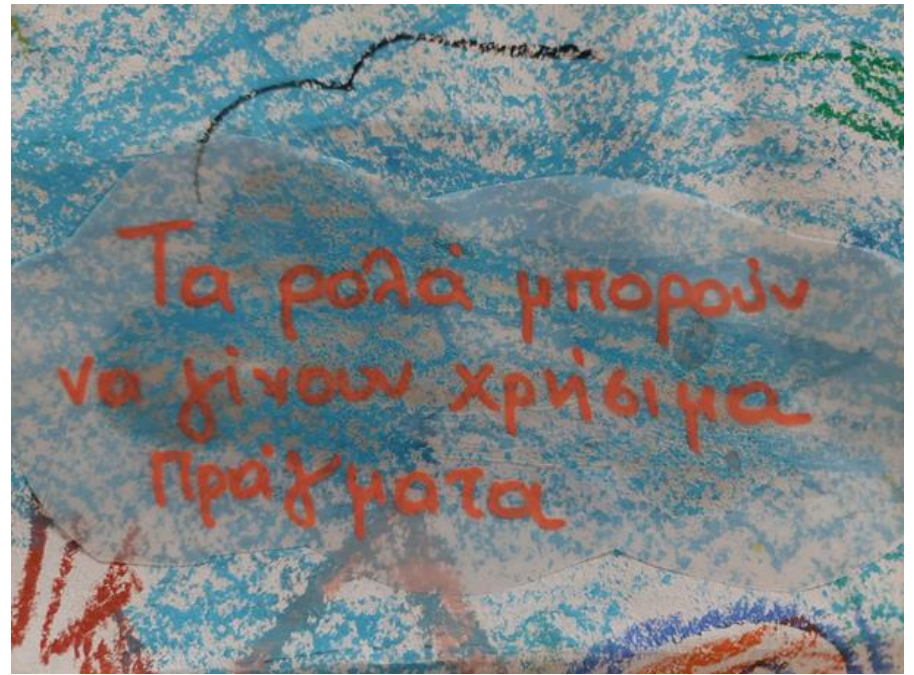 Τα ρολά μπορούν
να γίνουν χρήσιμα
πράγματα